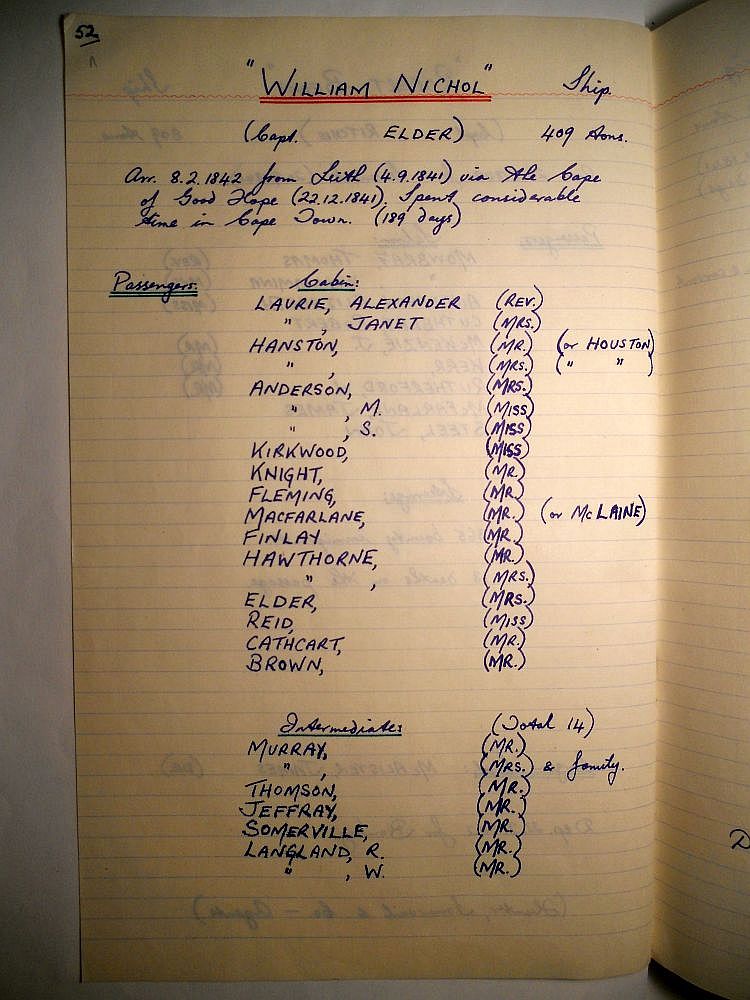 52
"WILLIAM NICHOL" Ship.
(Capt. ELDER) 409 tons.
Arr. 8.2.1842 from Leith (4.9.1841) via the Cape
of Good Hope (22.12.1841). Spent considerable
time in Cape Town. (189 days)
Passengers: Cabin:
LAURIE, ALEXANDER (REV.)
" , JANET (MRS.)
HANSTON, (MR.) (or HOUSTON)
" , (MRS.) ( " " )
ANDERSON, (MRS.)
" , M. (MISS)
" , S. (MISS)
KIRKWOOD, (MISS)
KNIGHT, (MR.)
FLEMING, (MR.)
MACFARLANE, (MR.) (or McLAINE)
FINLAY (MR.)
HAWTHORNE, (MR.)
" , (MRS.)
ELDER, (MRS.)
REID, (MISS)
CATHCART, (MR.)
BROWN, (MR.)
Intermediate: (Total 14)
MURRAY, (MR.)
" , (MRS.) & family.
THOMSON, (MR.)
JEFFRAY, (MR.)
SOMERVILLE, (MR.)
LANGLAND, R. (MR.)
" , W. (MR.)
D